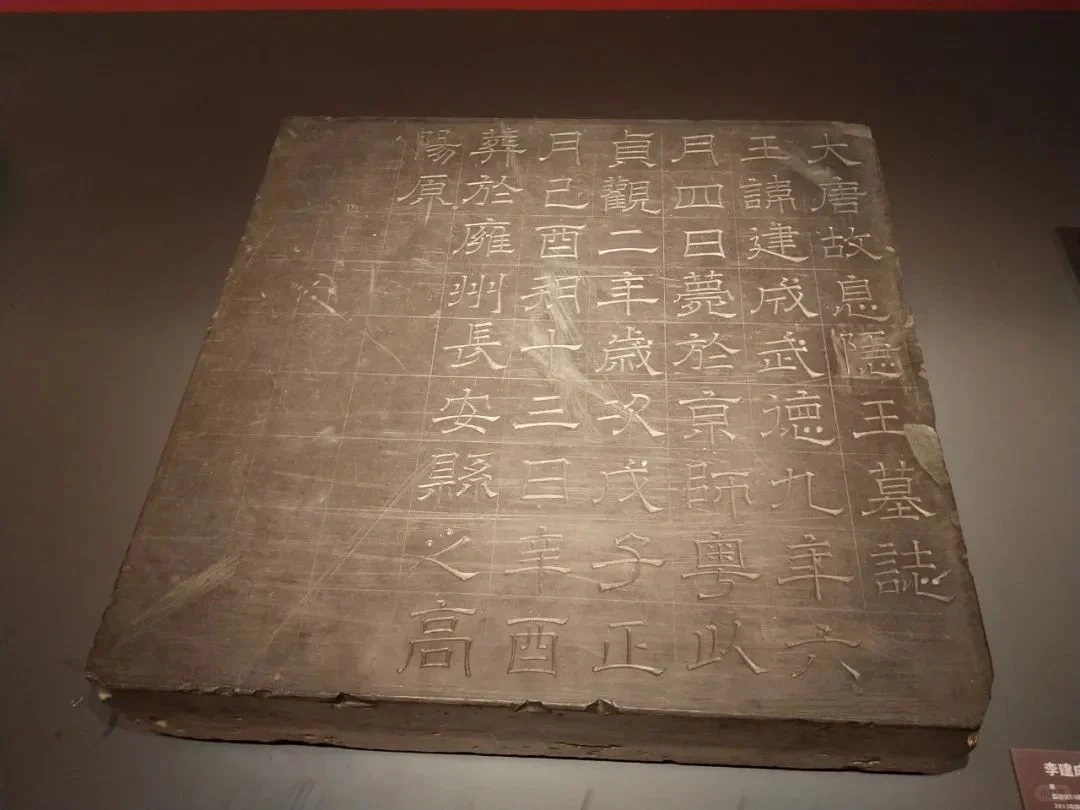 大唐故息隱王墓誌
王諱建成武德九年六
月四日薨於京師粵以
貞觀二年歲次戊子正
月己酉朔十三日辛酉
葬於雍州長安縣之高
陽原
李建成